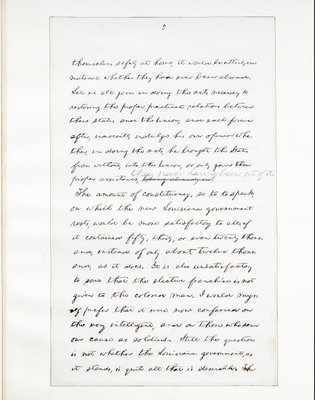 5
themselves safely at home, it would be utterly im-
material whether they had ever been abroad.
Let us all join in doing the acts necessary to
restoring the proper practical relations between
these states and the Union; and each forever
after, innocently indulge his own opinion whe-
ther, in doing the acts, he brought the States
from without, into the Union, or only gave them
proper assistance, they never having been out of it.
The amount of constituency, so to speak,
on which the new Louisiana government
rests, would be more satisfactory to all, if
it contained fifty, thirty, or even twenty thous-
and, instead of only about twelve thous-
and, as it does. It is also unsatisfactory
to some that the elective franchise is not
given to the colored man. I would myself
prefer that it were now conferred on
the very intelligent, and on those who serve
our cause as soldiers. Still the question
is not whether the Louisiana government, as
it stands, is quite all that is desirable. The